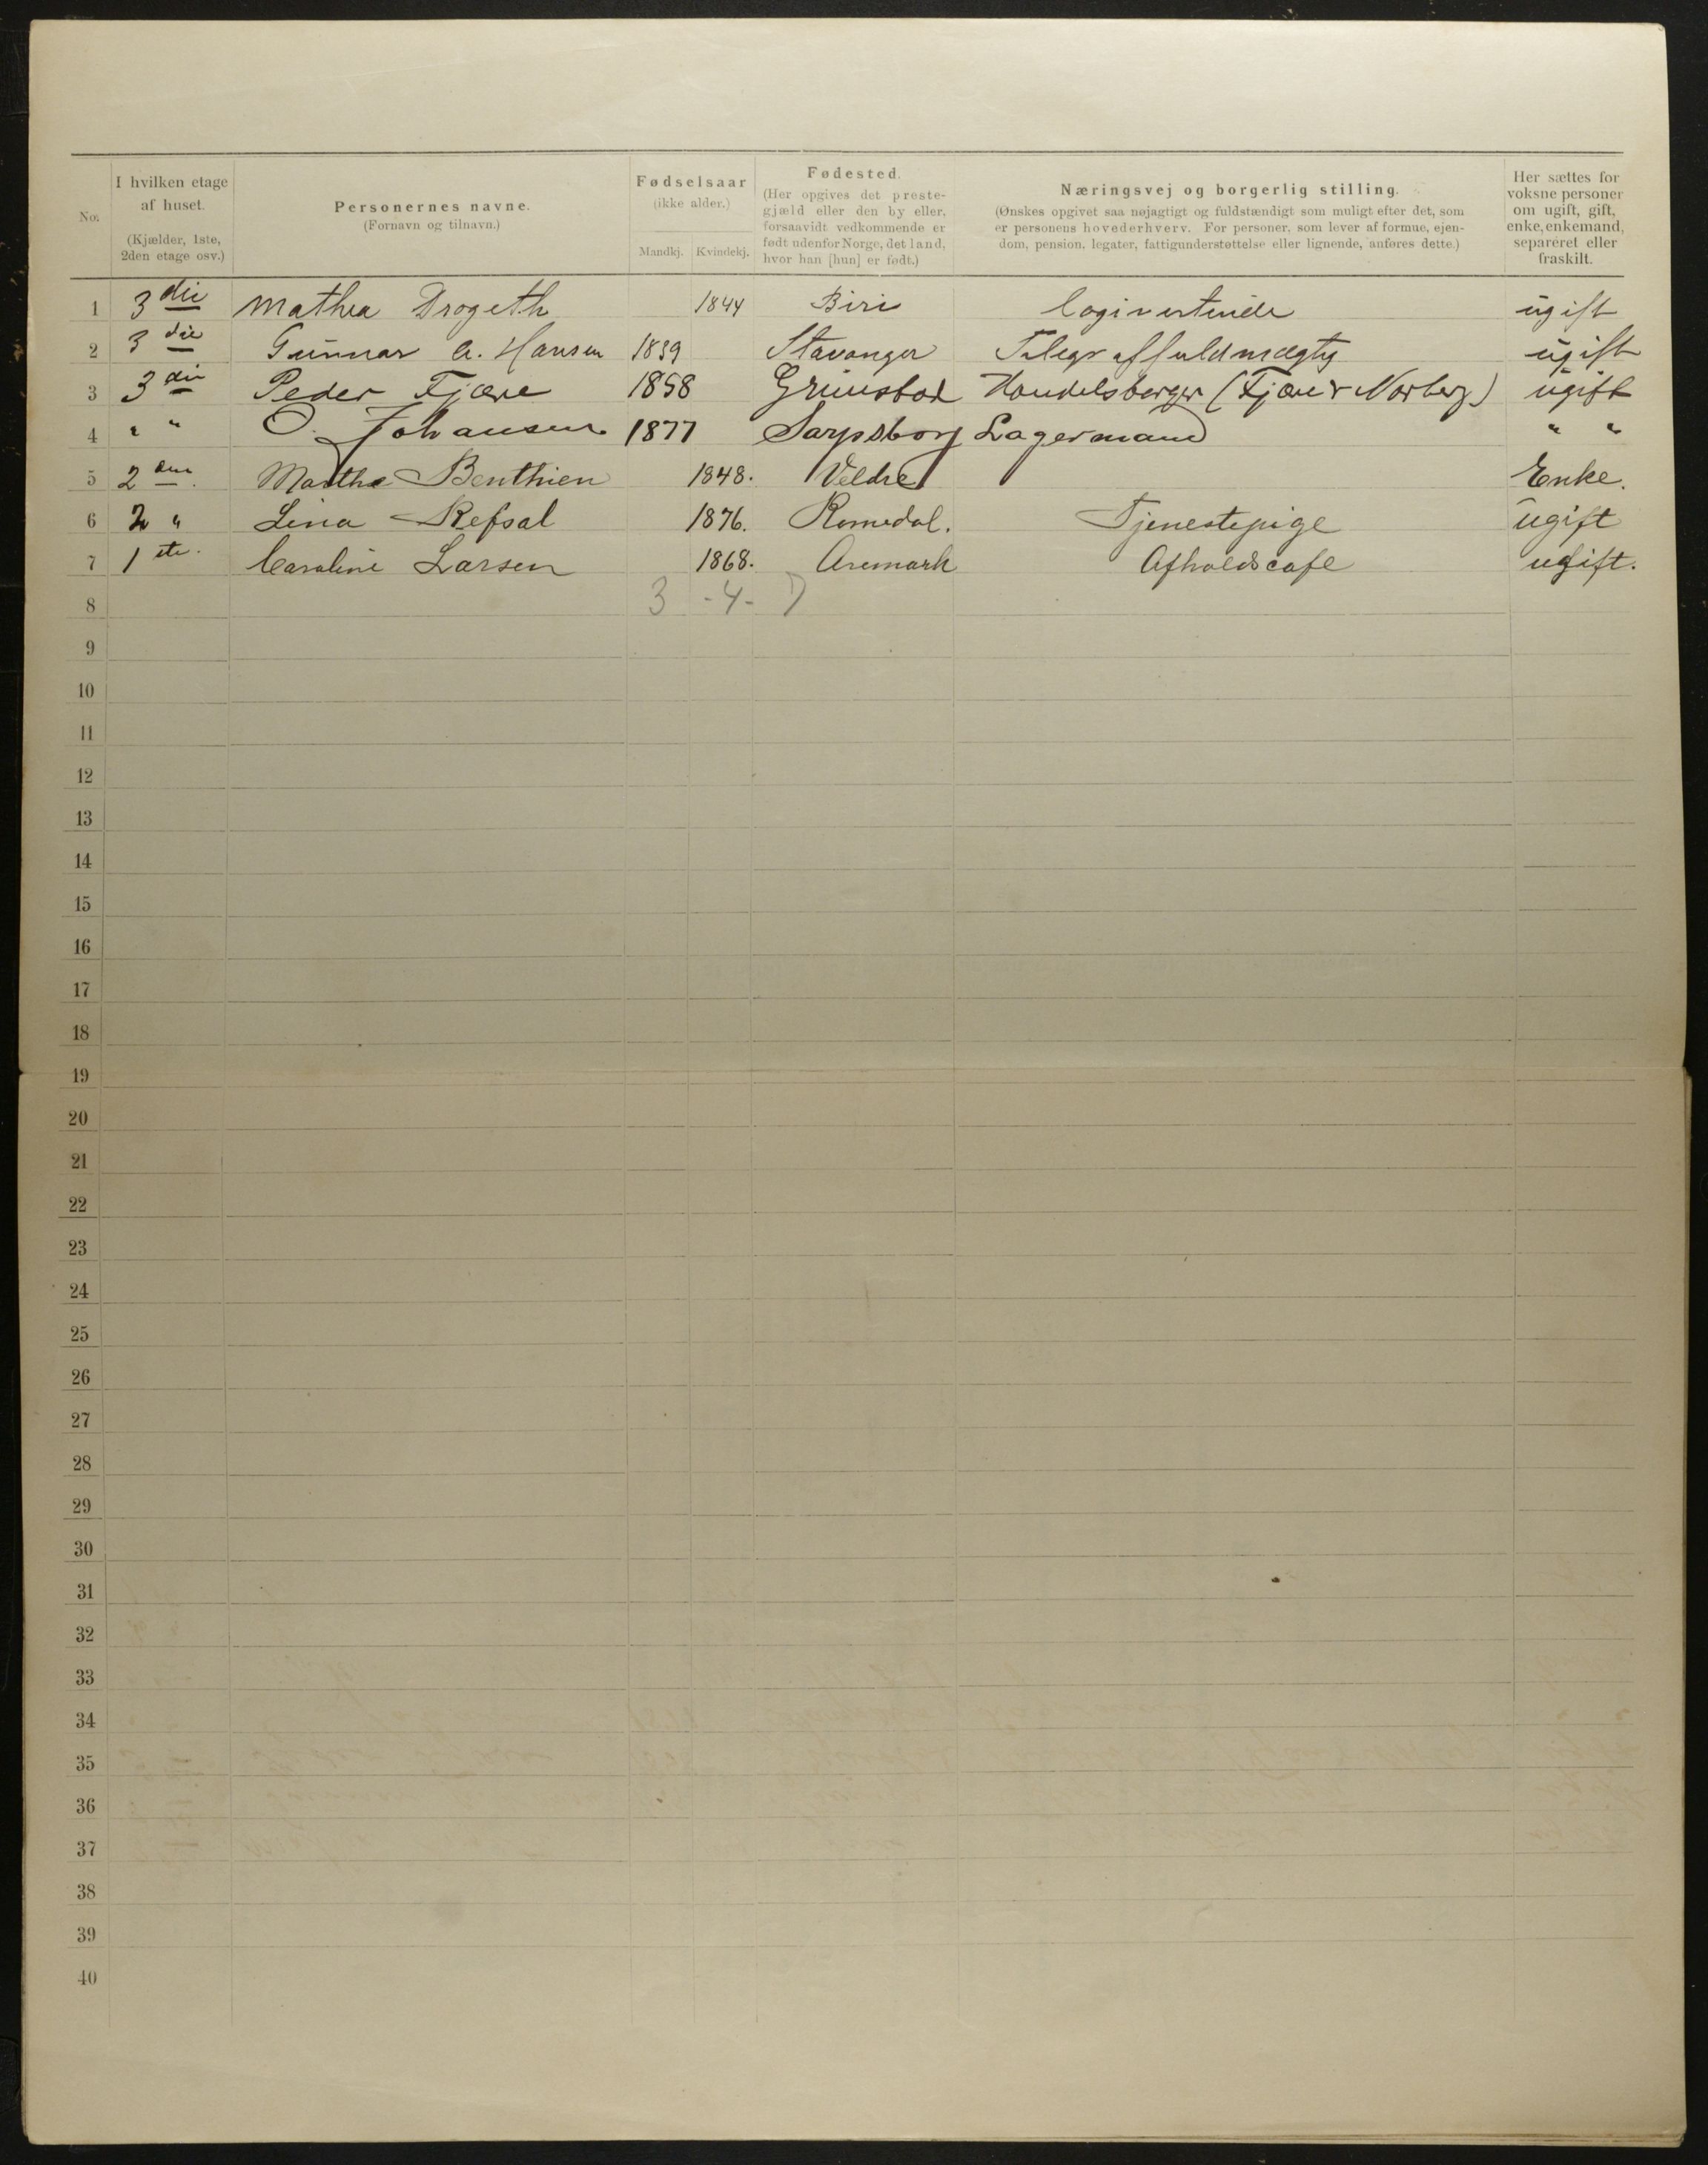 No: I hvilken etage af huset. (Kjælder, 1ste, 2den etage osv.) Personernes navne. (Fornavn og tilnavn.) Fødselsaar (ikke alder.) Mandkj. Kvindekj. Fødested. (Her opgives det prestegjæld eller den by eller, forsaavidt vedkommende er født udenfor Norge, det land, hvor han [hun] er født.) Næringsvej og borgerlig stilling. (Ønskes opgivet saa nøjagtigt og fuldstændigt som muligt efter det, som er personens hovederhverv. For personer, som lever af formue, ejendom, pension, legater, fattigunderstøttelse eller lignende, anføres dette.) Her sættes for voksne personer om ugift, gift, enke, enkemand, separeret eller fraskilt.
1 3die Mathea Drogeth 1844 Biri Logivertinde ugift
2 3die Gunnar A. Hansen 1839 Stavanger Telegraffuldmægtig ugift
3 3die Peder Fjære 1858 Grimstad Handelsborger (Fjære & Norberg) ugift
4 " " O. Johansen 1877 Sarpsborg Lagermand " "
5 2den. Marthe Benthien 1848. Veldre Enke.
6 2 " Lina Refsal 1876. Romedal. Tjenestepige ugift
7 1ste. Caroline Larsen 1868. Aremark Afholdscafe ugift.
8 3 - 4 - 7
9
10
11
12
13
14
15
16
17
18
19
20
21
22
23
24
25
26
27
28
29
30
31
32
33
34
35
36
37
38
39
40